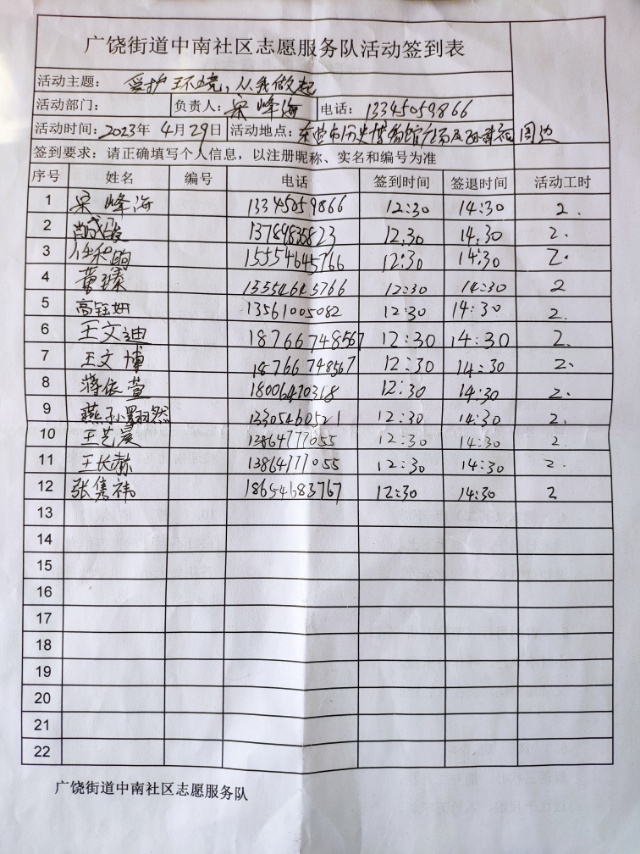 广饶街道中南社区志愿服务队活动签到表
活动主题： 爱护环境，从我做起
活动部门： 负责人： 梁峰海 电话： 13345059866
活动时间：2023年 4月29日 活动地点：东营市历史博物馆 周边
签到要求：请正确填写个人信息，以注册昵称、实名和编号为准
序号 姓名 编号 电话 签到时间 签退时间 活动工时
1 梁峰海 13345059866 12:30 14:30 2.
2 12:30 14:30 2.
3 任和明 15554645766 12:30 14:30 2.
4 黄臻 12:30 14:30 2
5 高钰妍 13561005082 12:30 14:30 2.
6 王文迪 18766748567 12:30 14:30 2.
7 王文博 18766748567 12:30 14:30 2.
8 蒋依萱 18006470318 12:30 14:30 2.
9 13305460521 12:30 14:30 2.
10 王艺晨 13864777055 12:30 14:30 2.
11 王长赫 13864777055 12:30 14:30 2.
12 张隽祎 18654683767 12:30 14:30 2
13
14
15
16
17
18
19
20
21
22
广饶街道中南社区志愿服务队